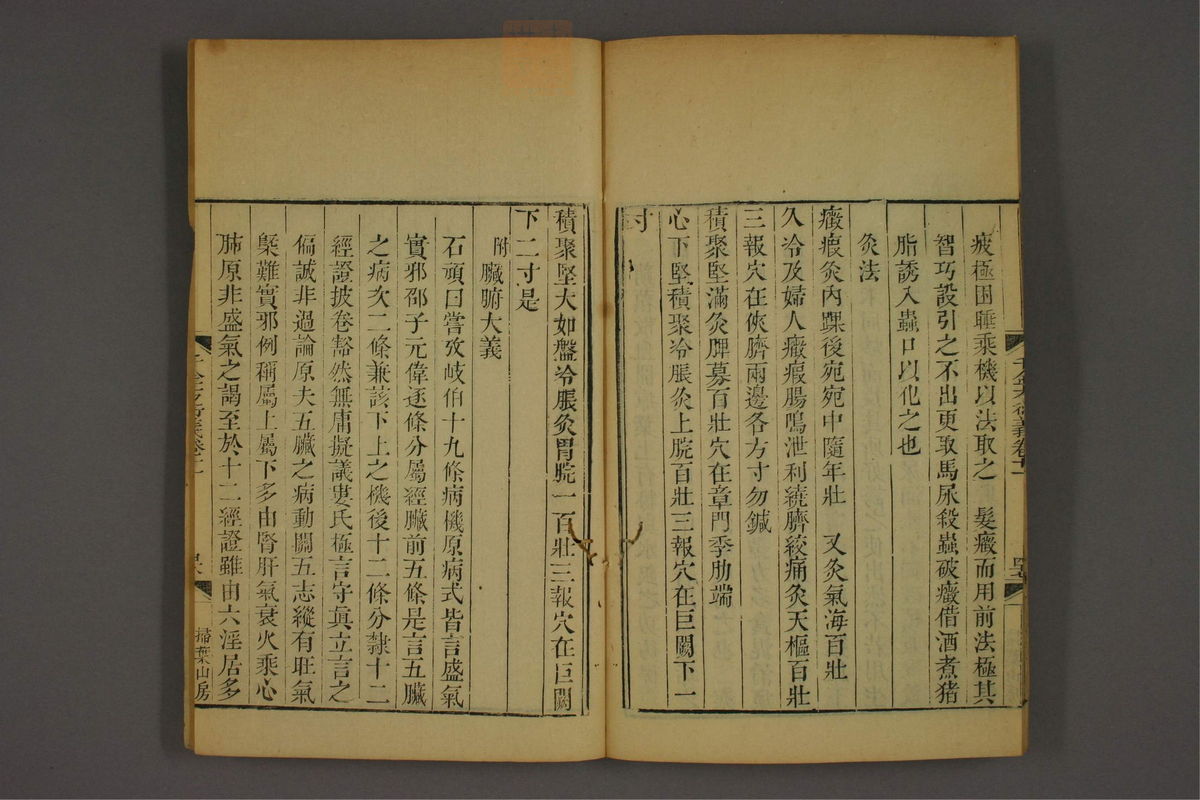 疲極困睡乘機以法取之 髮癥而用前法極其
智巧設引之不出更取馬尿殺蟲破癥借酒煮猪
脂誘入蟲口以化之也
灸法
癥瘕灸內踝後宛宛中隨年壯 又灸氣海百壯
久冷及婦人癥瘕腸鳴泄利繞臍絞痛灸天樞百壯
三報穴在俠臍兩邊各方寸勿鍼
積聚堅滿灸脾募百壯穴在章門季肋端
心下堅積聚冷脹灸上脘百壯三報穴在巨闕下一
寸
積聚堅大如盤冷脹灸胃脘一百壯三報穴在巨闕
下二寸是
附臟腑大義
石頑曰嘗攷岐伯十九條病機原病式皆言盛氣
實邪邵子元偉逐條分屬經臟前五條是言五臟
之病次二條兼該下上之機後十二條分隸十二
經證披卷豁然無庸擬議婁氏極言守真立言之
偏誠非過論原夫五臟之病動關五志縱有旺氣
槩難實邪例稱屬上屬下多由腎肝氣衰火乘心
肺原非盛氣之謂至於十二經證雖由六淫居多
千金方衍義卷十一
掃葉山房